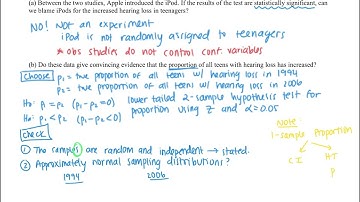 (a) Between the two studies, Apple introduced the iPod. If the results of the test are statistically significant, can
we blame iPods for the increased hearing loss in teenagers?
NO! Not an experiment
iPod is not randomly assigned to teenagers
* obs studies do not control conf. variables
(b) Do these data give convincing evidence that the proportion of all teens with hearing loss has increased?
Choose p₁ = true proportion of all teens w/ hearing loss in 1994
p₂ = true proportion of all teens w/ hearing loss in 2006
Ho: p₁ = p₂ (p₁-p₂=0) lower tailed 2-sample hypothesis test for
Ha: p₁ < p₂ (p₁-p₂<0) proportion using Z and α=0.05
Check
① The samples are random and independent → stated.
② Approximately normal sampling distributions?
1994 2006
Note:
1-sample Proportion
CI HT
p